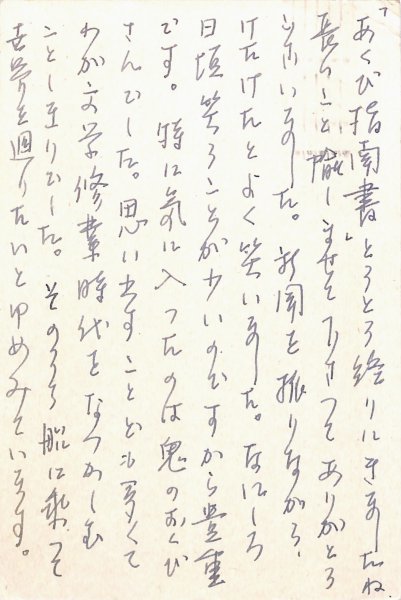 「あくび指南書」とうとう終りにきましたね
長いこと愉しませて下さってありがとう
ございました。新聞を振りながら、
けたけたとよく笑いました。なにしろ
日頃笑うことが少いのですから貴重
です。特に気に入ったのは鬼のあくび
さんでした。思い出すことども多くて
わが文学修業時代をなつかしむ
こととし至りました。そのうち船に乗って
を廻りたいとゆめみています。